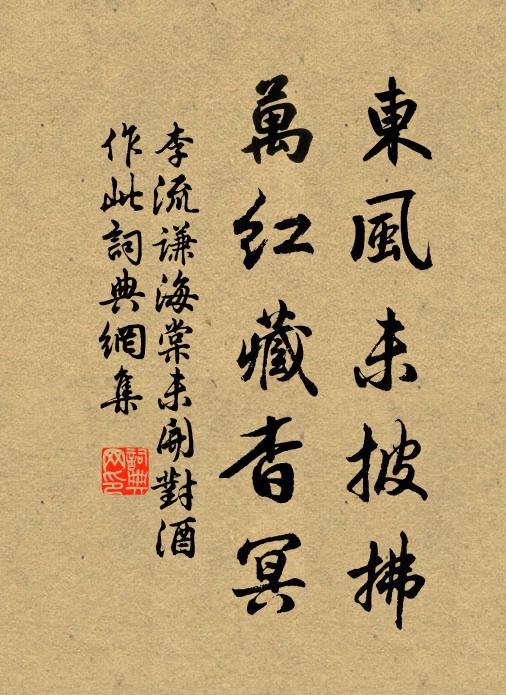 東風未披拂
萬紅藏杳冥
李流谦海棠未開對酒
作此詞典網集
詞典
网印